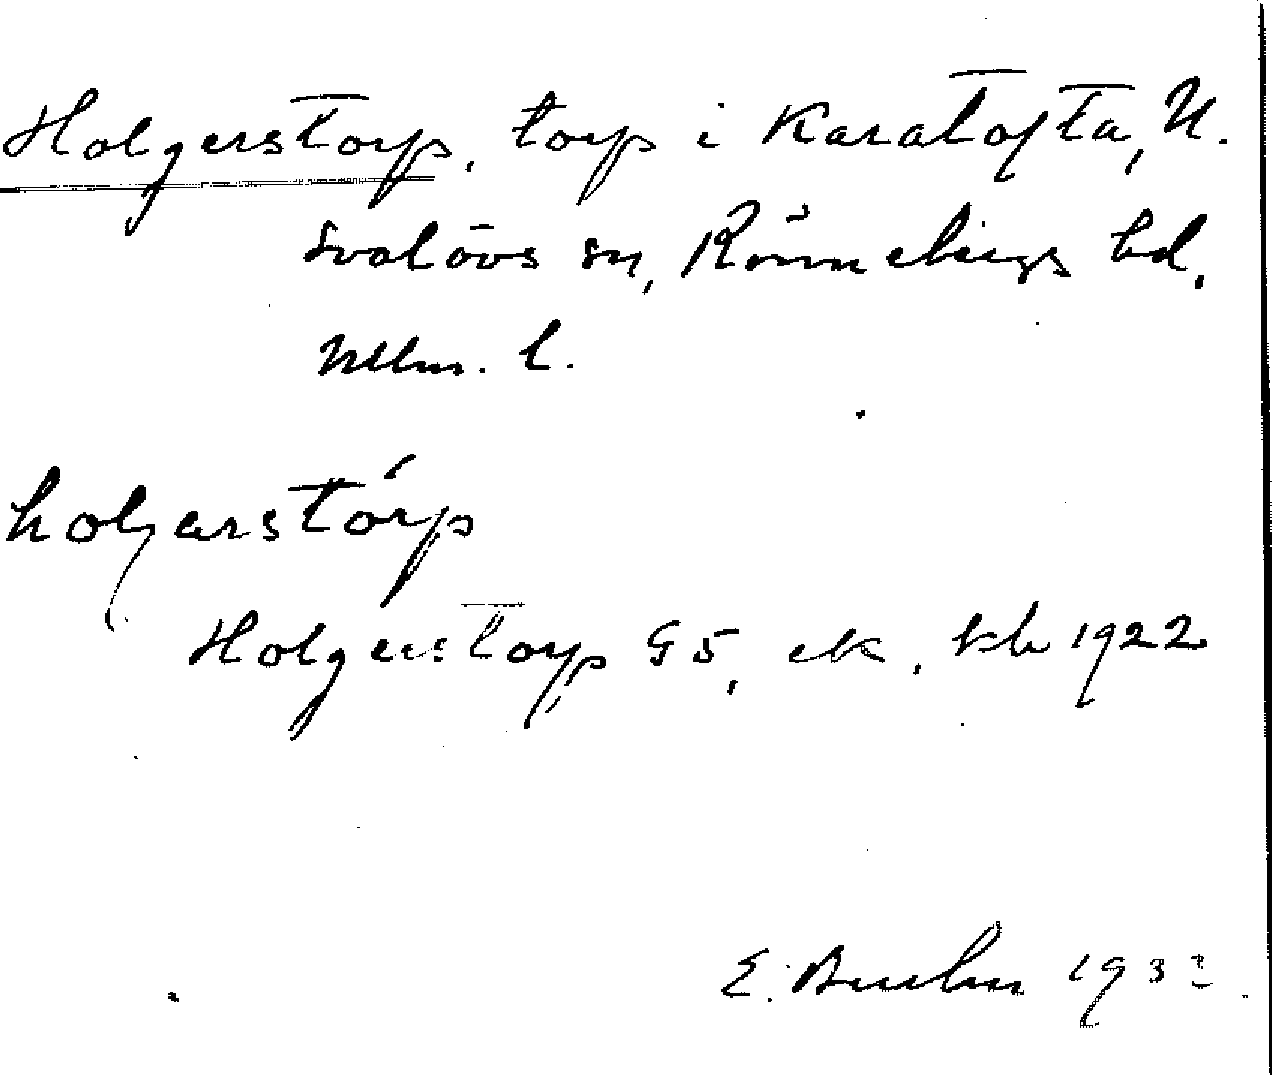 Holgerstorp, torp i Karatofta, N.
Svalövs sn, Rönnebergs hd,
Mlm. l.
holgarstórp
Holgerstorp G5, ek. kb 1922
E. Bruhn 193